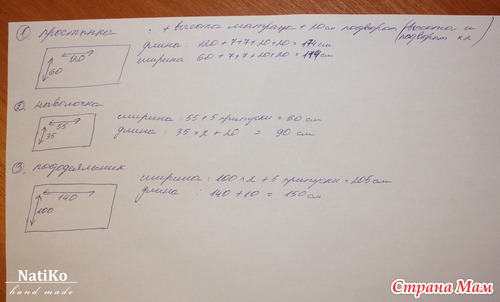 ① простынка + высота матраца + 20 см подворот (высота и подворот x 2
120
60
длина : 120 + 7 + 7 + 20 + 20 = 174 см
ширина 60 + 7 + 7 + 20 + 20 = 114 см
② наволочка
55
35
ширина : 55 + 5 припуски = 60 см
длина : 35 × 2 + 20 = 90 см
③ пододеяльник
140
100
ширина : 100 × 2 + 5 припуски = 205 см
длина : 140 + 10 = 150 см
NatiKo
hand made
Страна Мам